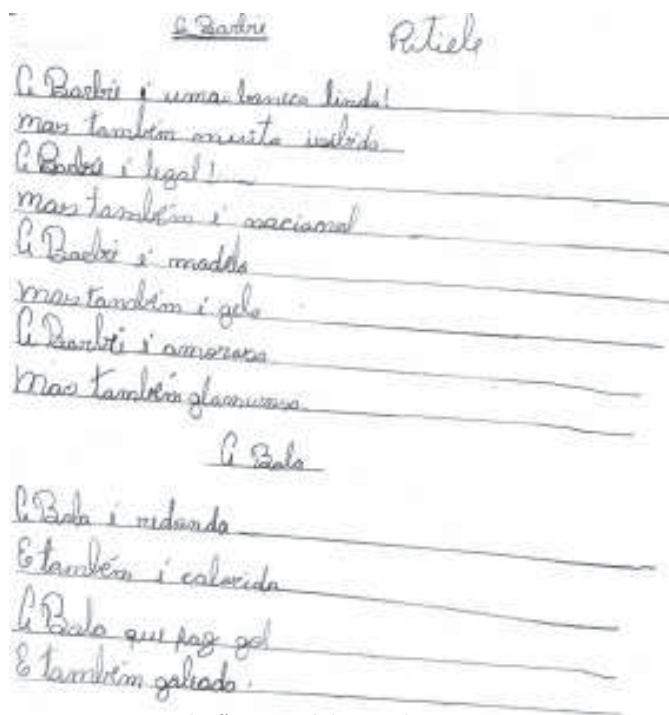 A Barbie Ritiele
A Barbie é uma boneca linda!
mas também muito
A Barbie é legal!
mas também é nacional
A Barbie é modelo
mas também é gela
A Barbie é amorosa
Mas também glamurosa
A Bola
A Bola é redonda
E também é colorida
A Bola que faz gol
E também goleada.